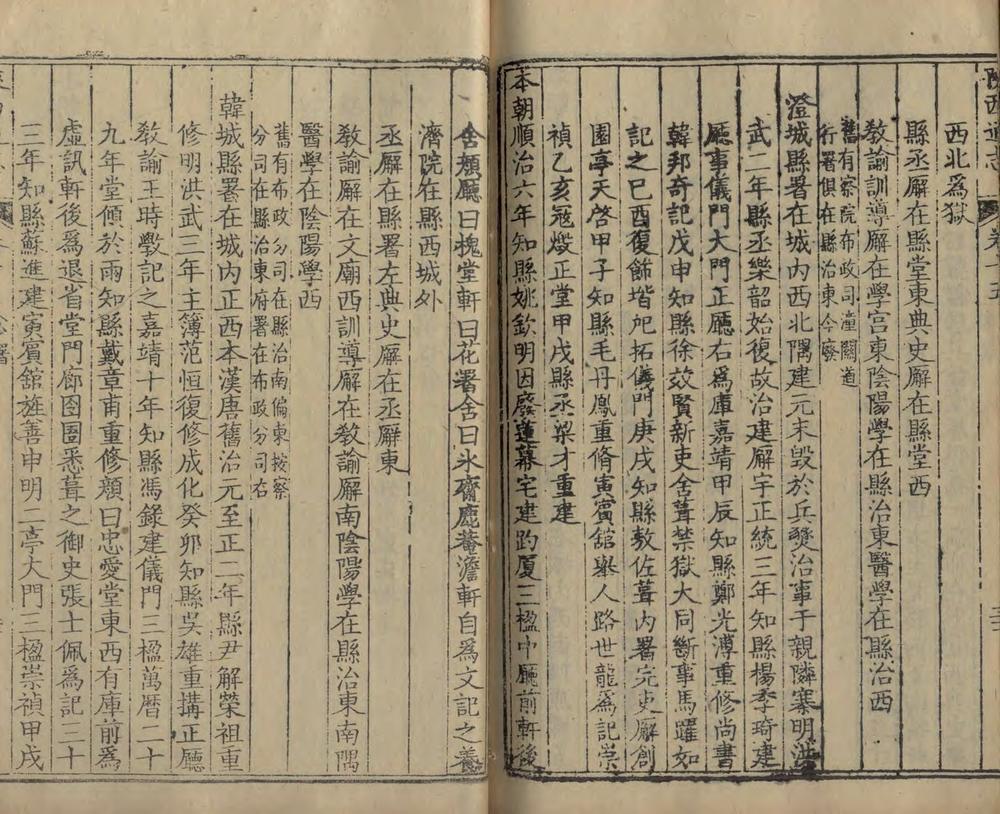 陝西通志 卷十五
西北爲獄
縣丞廨在縣堂東典史廨在縣堂西
教諭訓導廨在學宫東陰陽學在縣治東醫學在縣治西
舊有察院布政司潼關道
行署俱在縣治東今廢
澄城縣署在城内西北隅建元末毁於兵燹治事于親隣寨明洪
武二年縣丞樂韶始復故治建廨宇正統三年知縣楊季琦建
廳事儀門大門正廳右爲庫嘉靖甲辰知縣鄭光溥重修尚書
韓邦奇記戊申知縣徐效賢新吏舍葺禁獄大同斷事馬躍如
記之已酉復飾堦戺拓儀門庚戌知縣敖佐葺内署完吏廨創
園亭天啓甲子知縣毛丹鳳重脩寅賓舘舉人路世龍爲記崇
禎乙亥寇燬正堂甲戌縣丞梁才重建
本朝順治六年知縣姚欽明因廢蓮幕宅建豹厦三楹中廳前軒後
舍頟廳曰槐堂軒曰花署舍曰氷齋鹿菴澹軒自爲文記之養
濟院在縣西城外
丞廨在縣署左典史廨在丞廨東
教諭廨在文廟西訓導廨在教諭廨南陰陽學在縣治東南隅
醫學在陰陽學西
舊有布政分司在縣治南偏東按察
分司在縣治東府署在布政分司右
韓城縣署在城内正西本漢唐舊治元至正二年縣尹解榮祖重
修明洪武三年主簿范恒復修成化癸卯知縣吳雄重搆正廳
教諭王時斆記之嘉靖十年知縣馮錄建儀門三楹萬曆二十
九年堂傾於雨知縣戴章甫重修頟曰忠愛堂東西有庫前爲
虛訊軒後爲退省堂門廊囹圄悉葺之御史張士佩爲記三十
三年知縣蘇進建寅賓舘旌善申明二亭大門三楹崇禎甲戌